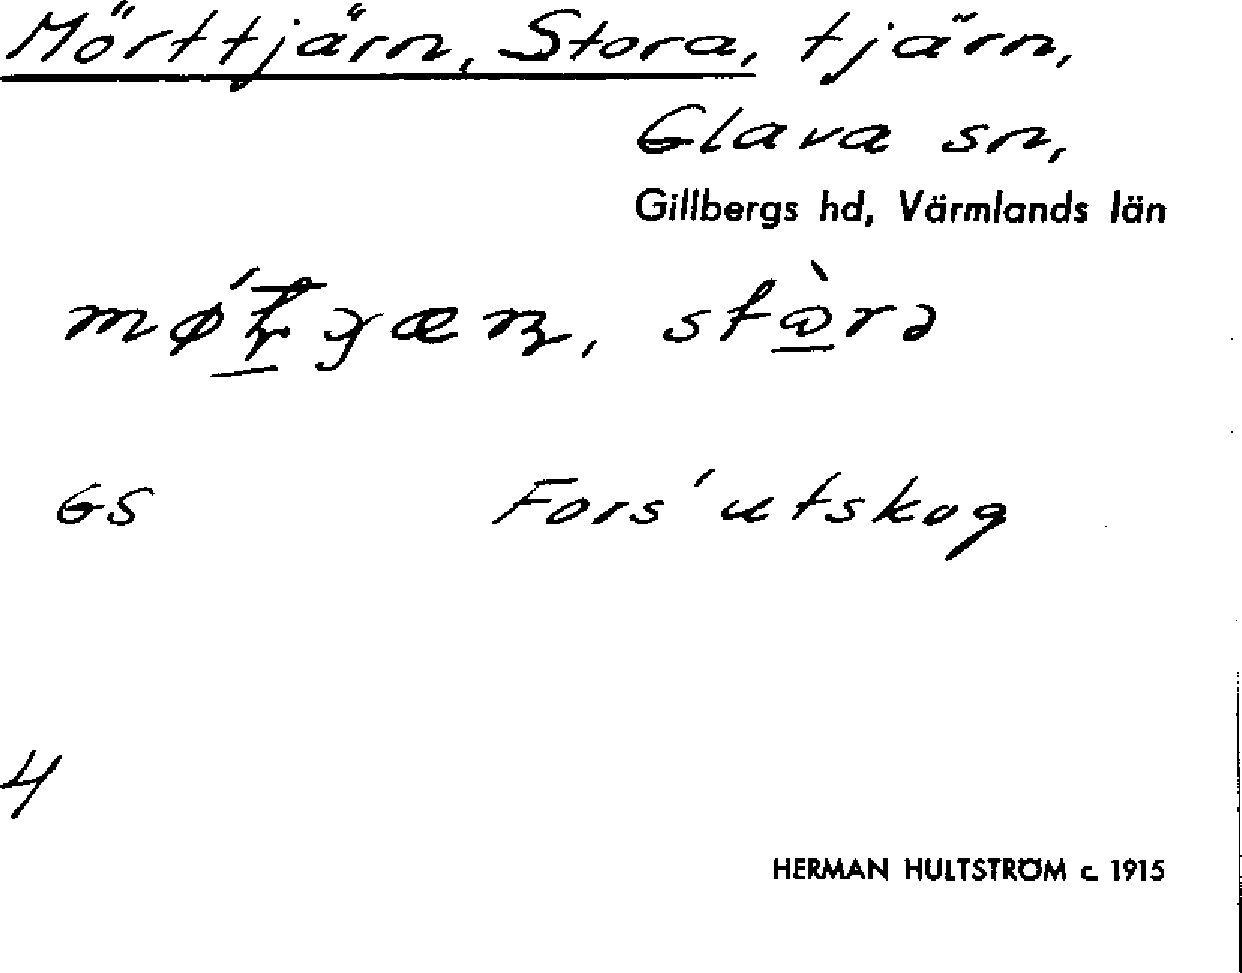 Mörttjärn, Stora, tjärn,
Glava sn,
Gillbergs hd, Värmlands län
GS Fors' utskog
4
HERMAN HULTSTRÖM c. 1915